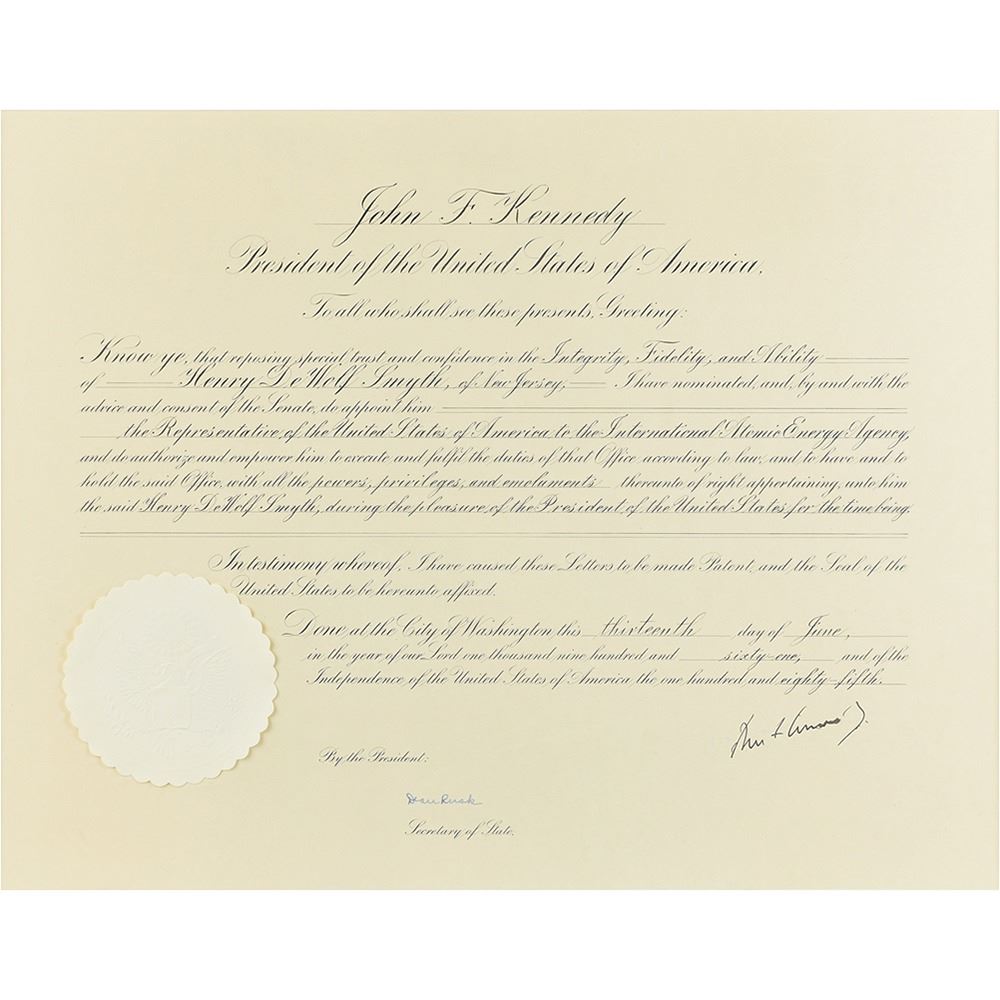 John F. Kennedy
President of the United States of America.
To all who shall see these presents, Greeting:
Know ye, that reposing special trust and confidence in the Integrity, Fidelity, and Ability
of Henry DeWolf Smyth, of New Jersey, I have nominated, and, by and with the
advice and consent of the Senate, do appoint him
the Representative of the United States of America to the International Atomic Energy Agency,
and do authorize and empower him to execute and fulfil the duties of that Office according to law, and to have and to
hold the said Office, with all the powers, privileges, and emoluments thereunto of right appertaining, unto him
the said Henry DeWolf Smyth, during the pleasure of the President of the United States for the time being.
In testimony whereof, I have caused these Letters to be made Patent, and the Seal of the
United States to be hereunto affixed.
Done at the City of Washington this thirteenth day of June,
in the year of our Lord one thousand nine hundred and sixty-one, and of the
Independence of the United States of America the one hundred and eighty-fifth.
By the President:
Dean Rusk
Secretary of State.